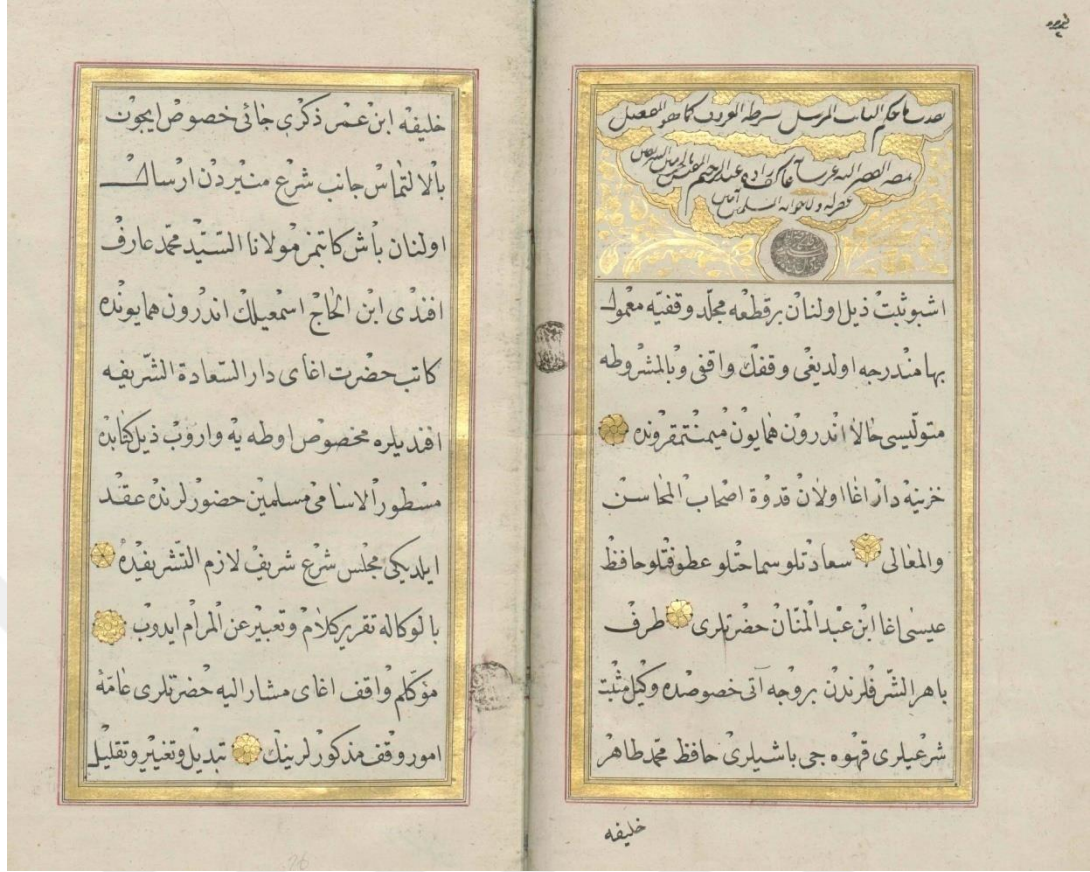 اشبو ثبت ذيل اولنان بر قطعه مجلّد وقفيّه معمول
بها مندرجه اولديغى وقفك واقفى وبالمشروطه
متوليسى حالا اندرون همايون ميمنتمقرونده
خزينه دار اغا اولان قدوة اصحاب المحاسن
والمعالى سعادتلو سماحتلو عطوفتلو حافظ
عيسى اغا ابن عبد المنّان حضرتلرى طرف
باهر الشرفلرندن بروجه آتى خصوصده وكيل مثبت
شرعيلرى قهوه جى باشيلرى حافظ محمد طاهر
خليفه
خليفه ابن عمر ذكرى جائى خصوص ايچون
بالالتماس جانب شرع منيردن ارسال
اولنان باش كاتبمز مولانا السّيّد محمد عارف
افندى ابن الحاج اسمعيلك اندرون همايونده
كاتب حضرت اغاى دار السّعادة الشّريفه
افنديلره مخصوص اوطه يه واروب ذيل كتابده
مسطور الاسامى مسلمين حضورلرنده عقد
ايلديكى مجلس شرع شريف لازم التّشريفده
بالوكاله تقرير كلام وتعبير عن المرام ايدوب
مؤكلم واقف اغاى مشار اليه حضرتلرى عامّة
امور وقف مذكورلرينك تبديل وتغيير وتقليل